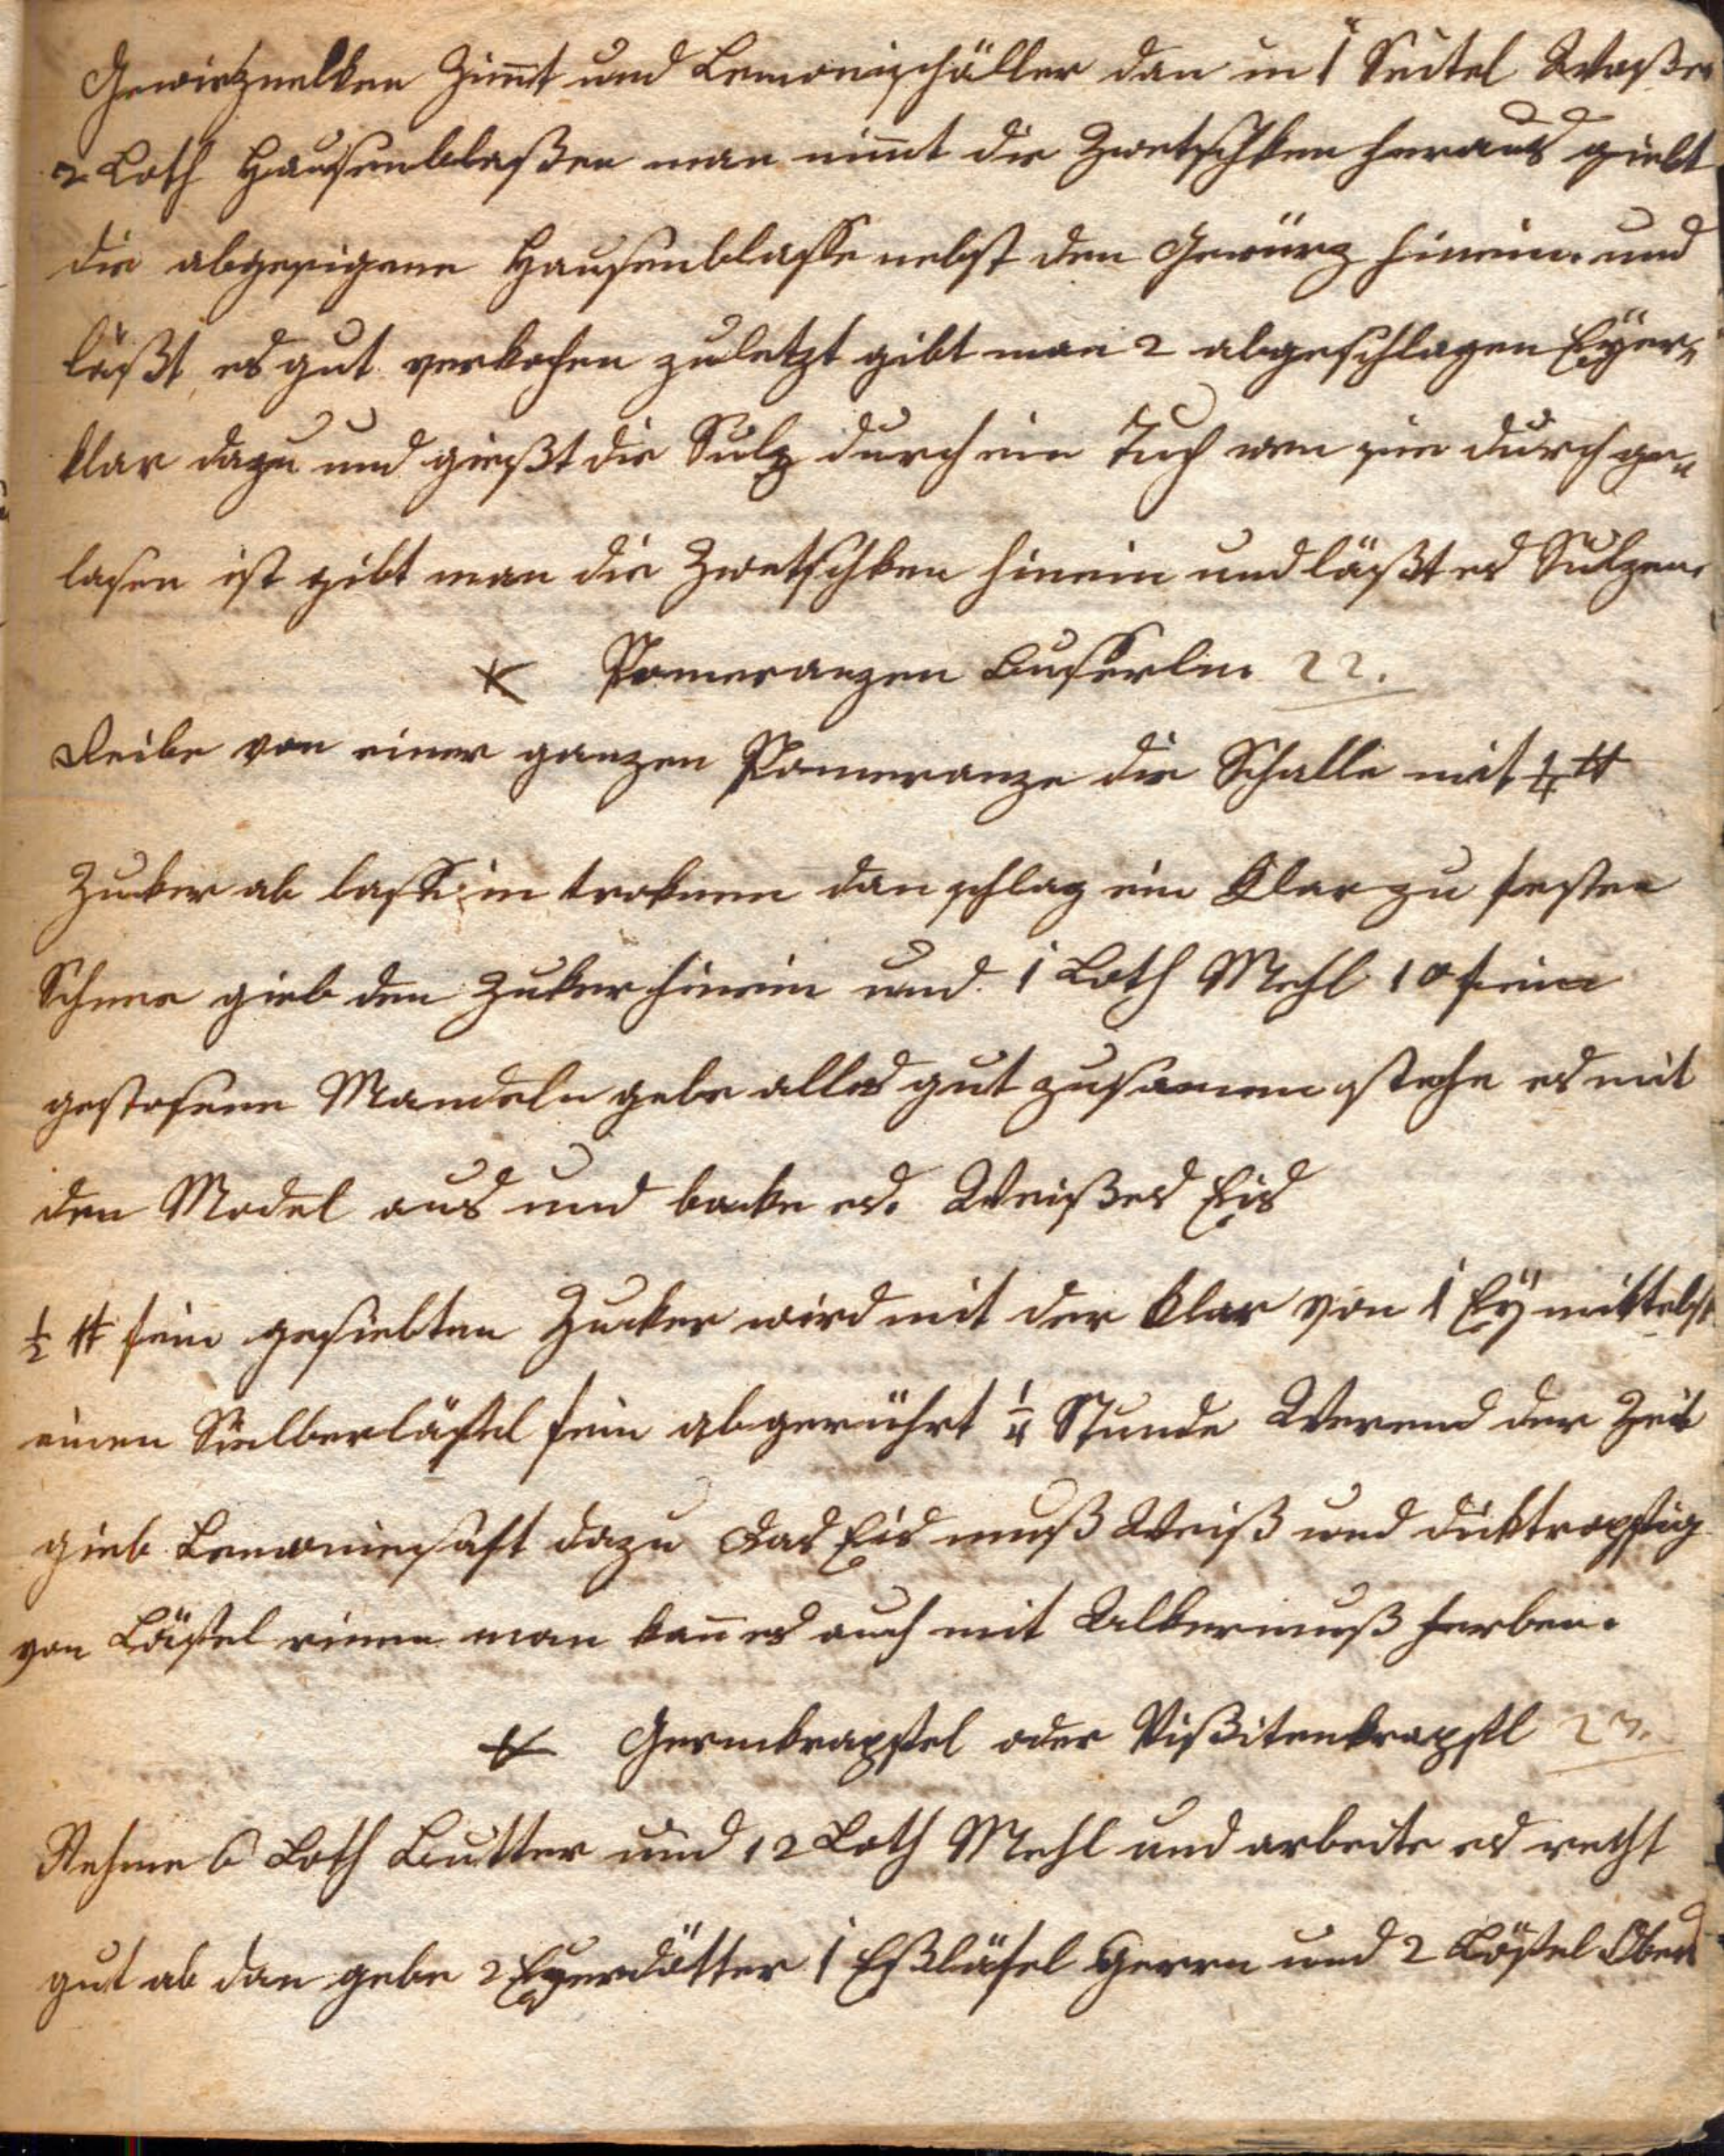 Gewirznelken Zimt und Lemonischäller dan in 1 Seitel Waßer
2 Loth Hausenblaßen man nimt die Zwetschken heraus giebt
die abgesigene Hausenblasse nebst den Gewürz hinein. und
läßt es gut verkochen zuletzt gibt man 2 abgeschlagen Eyer,
klar dazu und gießt die Sulz durch ein Tuch wen sie durch ge„
lasen ist gibt man die Zwetschken hinein und läßt es Sulzen.
Pomeranzen Busserln. 22.
Reibe von einer ganzen Pomeranze die Schalle mit ¼ ℔
Zucker ab lasse in troknen dan schlag ein Klar zu festen
Schnee gieb den Zuker hinein und 1 Loth Mehl 10 fein
gestosene Mandeln gebe alles gut zusamen steche es mit
den Model aus und backe es. Weißes Eis
½ ℔ fein gesiebten Zucker wird mit der Klar von 1 Eÿ mittelst
einen Sielberläfel fein abgerührt ¼ Stunde Werend der Zeit
gieb Lemoniensaft dazu Das Eis muß Weiß und dicktropfig
von Löffel rinen man kan̄ es auch mit Alkermuß ferben.
Germkrapfel oder Vißitenkrapfl 23.
Nehme 6 Loth Butter und 12 Loth Mehl und arbeite es recht
gut ab dan gebe 2 Eyerdötter 1 Eßläfel Germ und 2 Löfel Obers